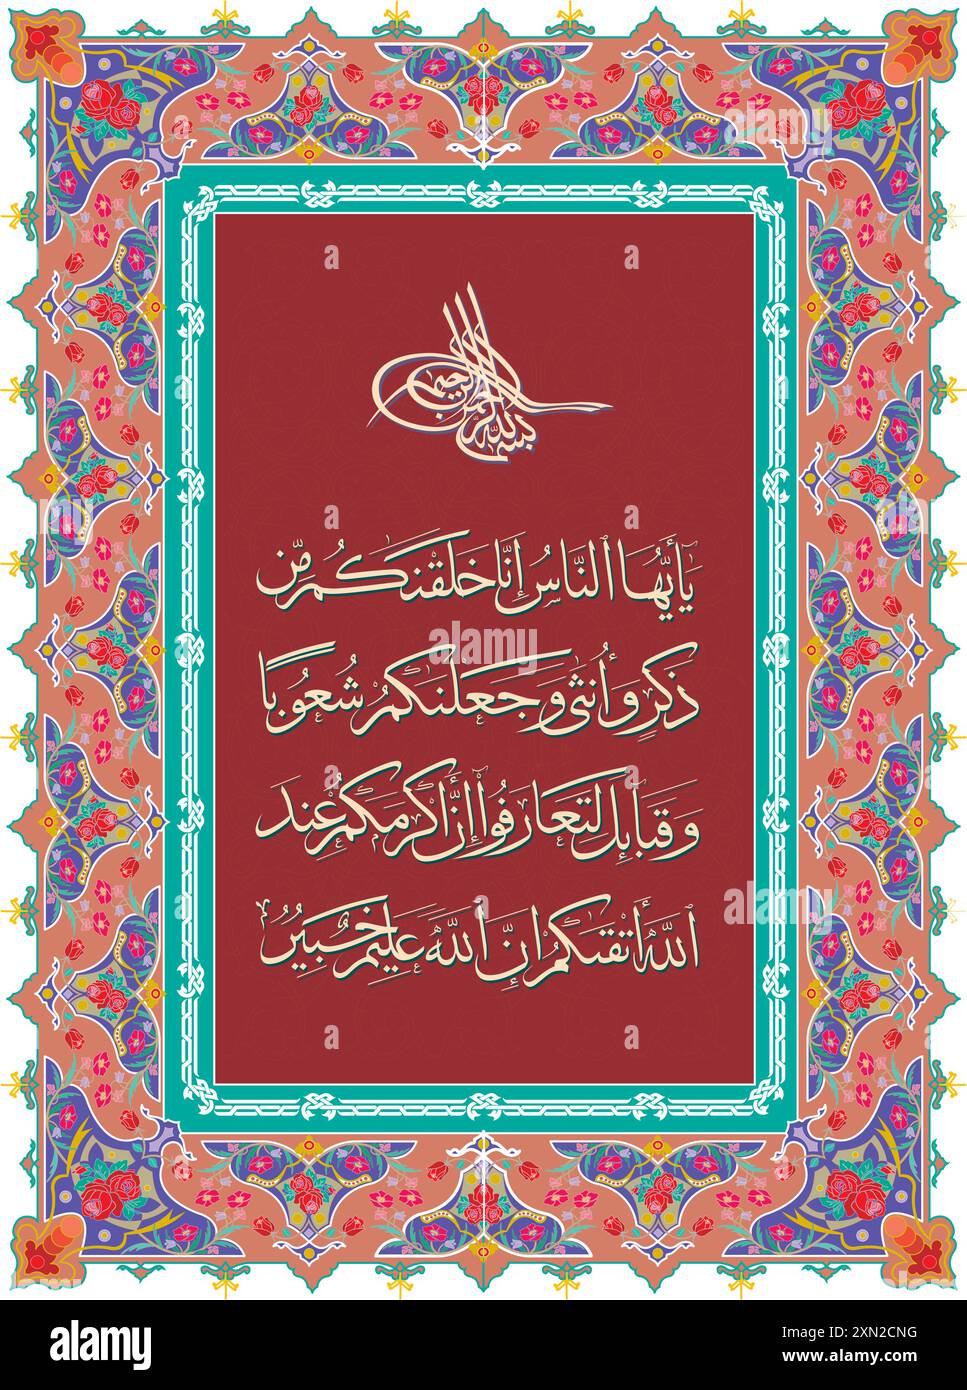 بسم الله الرحمن الرحيم
يٰأَيُّهَا ٱلنَّاسُ إِنَّا خَلَقْنَٰكُم مِّن
ذَكَرٍ وَأُنثَىٰ وَجَعَلْنَٰكُمْ شُعُوبًا
وَقَبَائِلَ لِتَعَارَفُوٓا۟ إِنَّ أَكْرَمَكُمْ عِندَ
ٱللَّهِ أَتْقَىٰكُمْ إِنَّ ٱللَّهَ عَلِيمٌ خَبِيرٌ
a a
alamy
alamy
a a
alamy
Image ID: 2XN2CNG
www.alamy.com